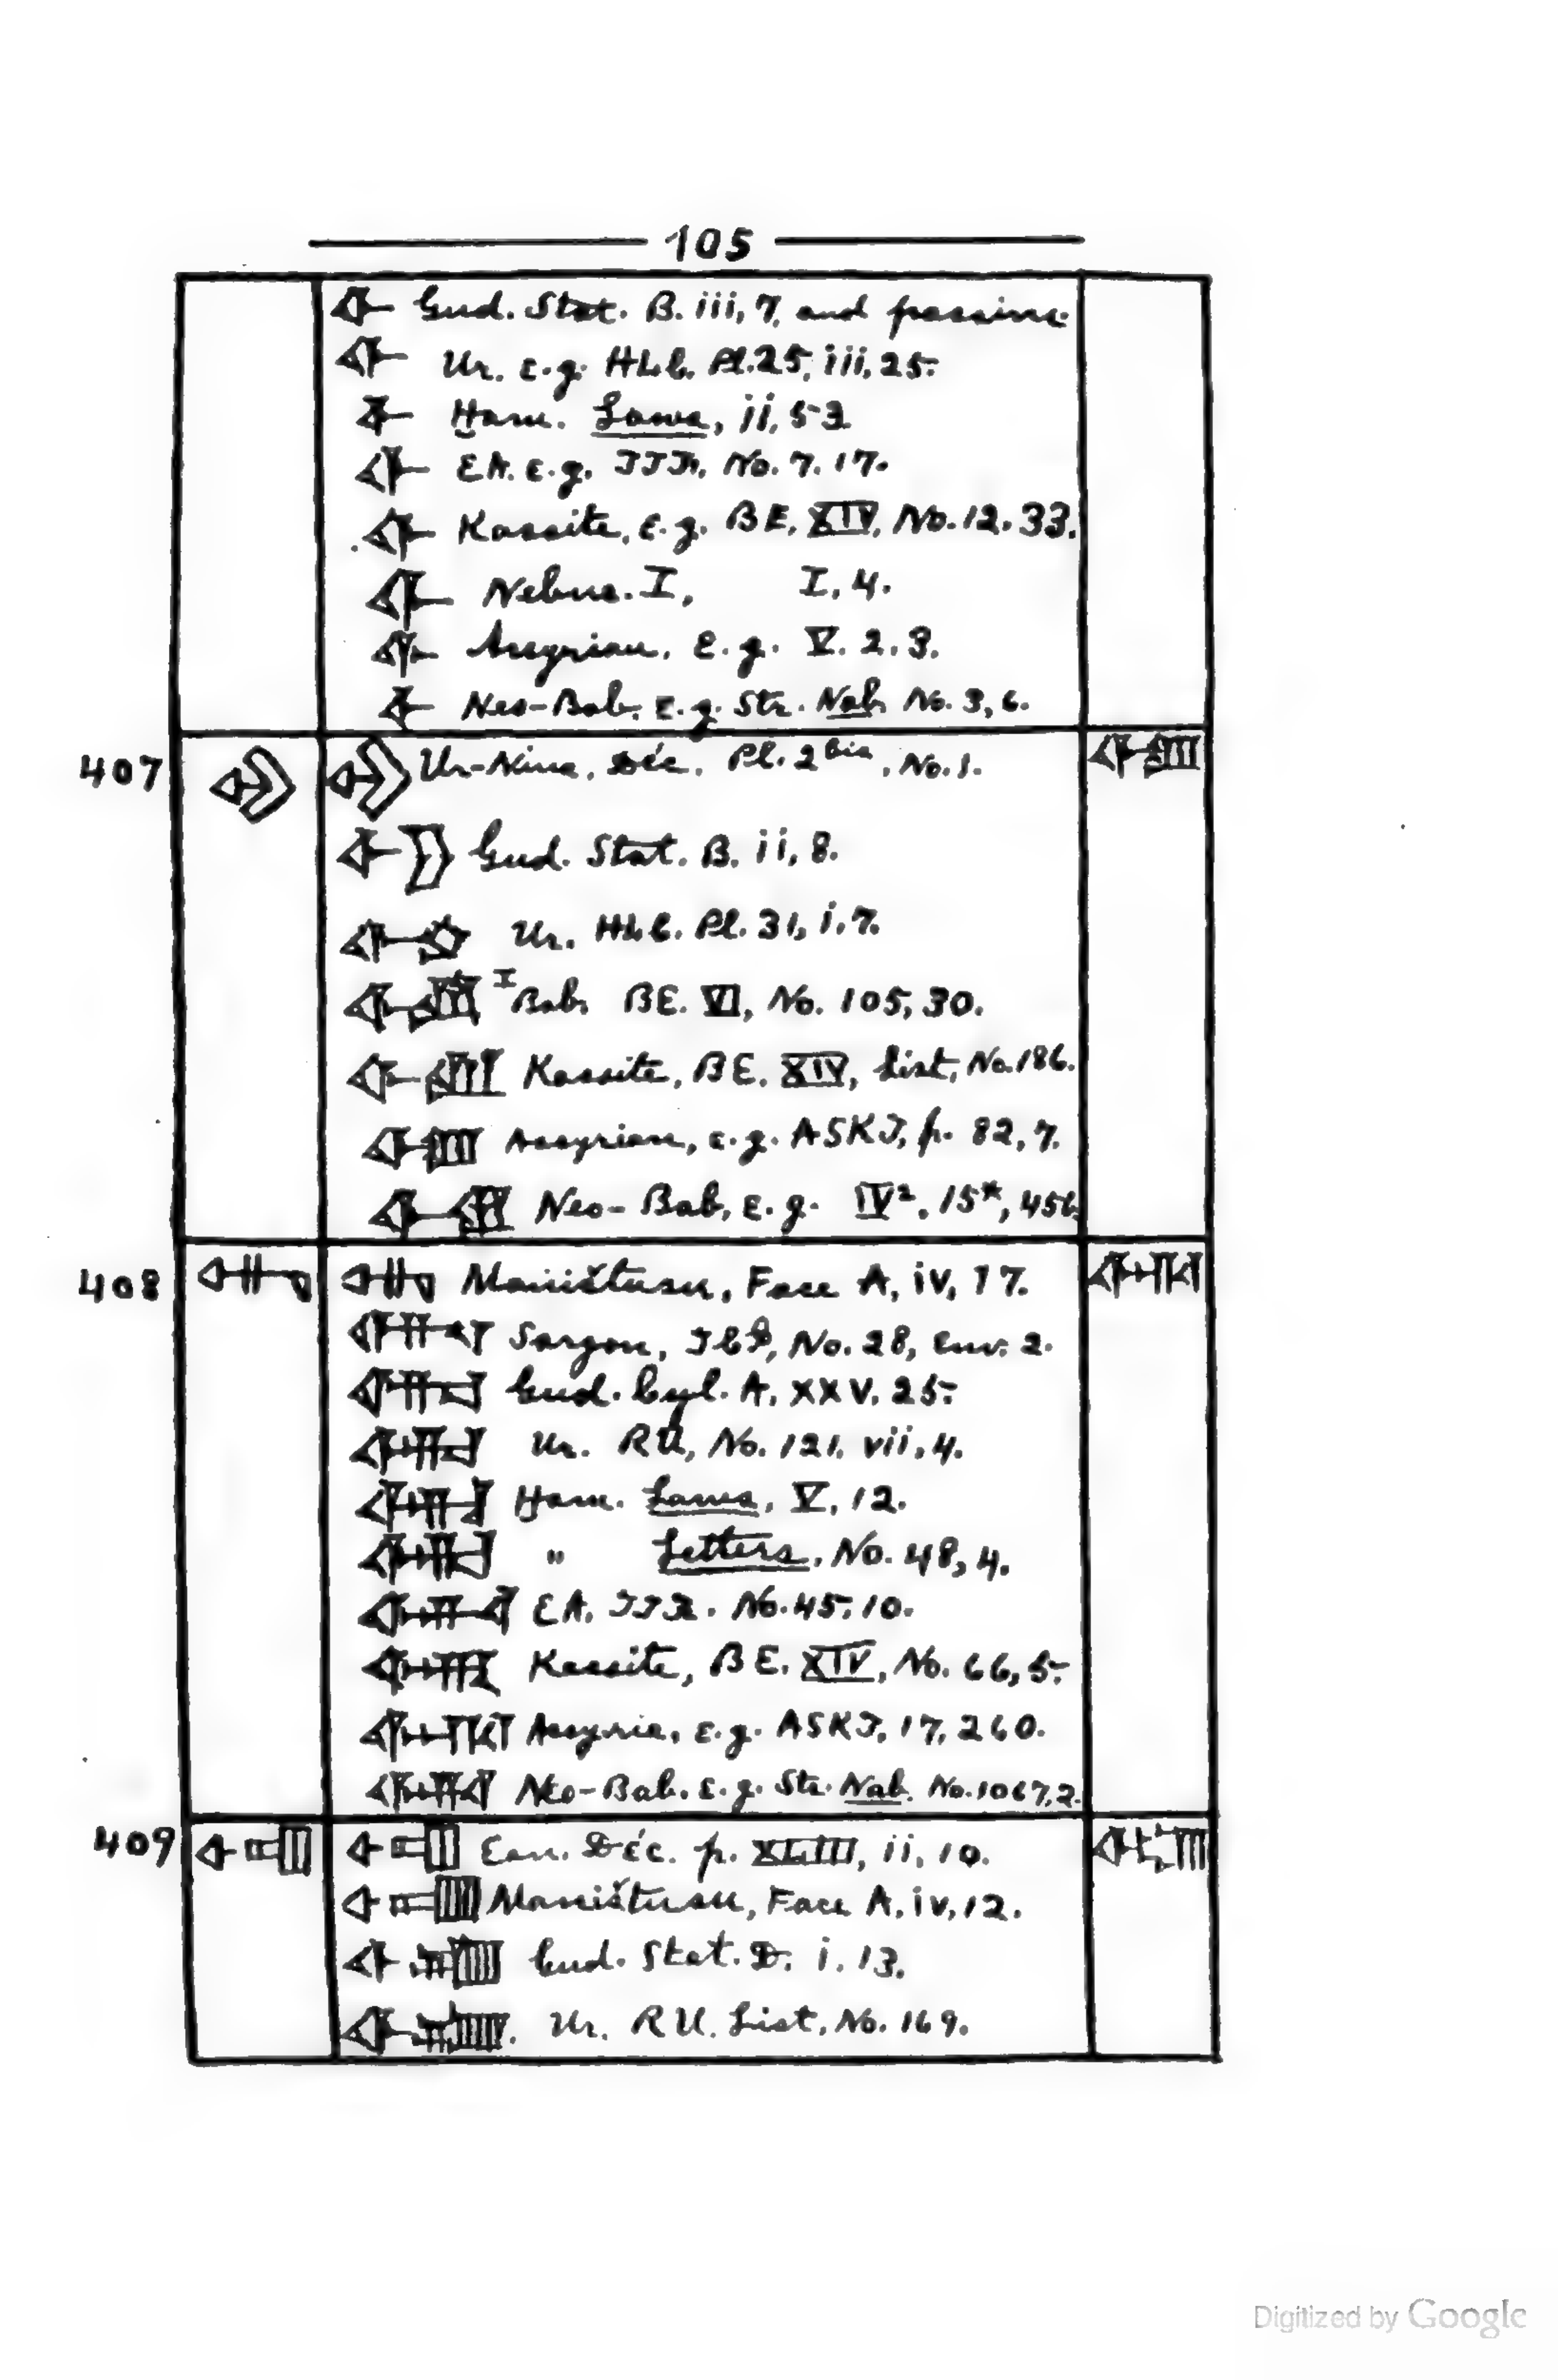 105
Gud. Stat. B. iii, 7, and passim.
Ur. e.g. HLC. Pl. 25, iii, 25.
Ḫam. Laws, ii, 52
EA. e.g. No. 7. 17.
Kassite, e.g. BE. XIV, No. 12. 33.
Nebuc. I, I, 4.
Assyrian, e.g. V. 2. 3.
Neo-Bab. e.g. Str. Nab. No. 3, 6.
407 Ur-Nina, Déc. Pl. 2 bis, No. 1.
Gud. Stat. B. ii, 8.
Ur. HLC. Pl. 31, i, 7.
I Bab. BE. VI, No. 105, 30.
Kassite, BE. XIV, List, No. 186.
Assyrian, e.g. ASKT, p. 82, 7.
Neo-Bab, e.g. IV², 15*, 45b
408 Maništusu, Face A, iv, 17.
Sargon, No. 28, Env. 2.
Gud. Cyl. A. XXV. 25.
Ur. RU, No. 121, vii, 4.
Ḫam. Laws, V, 12.
" Letters, No. 48, 4.
EA. No. 45, 10.
Kassite, BE. XIV, No. 66, 5.
Assyria, e.g. ASKT, 17, 260.
Neo-Bab. e.g. Str. Nab. No. 1067, 2.
409 Ean. Déc. p. XLIII, ii, 10.
Maništusu, Face A, iv, 12.
Gud. Stat. D. i. 13.
Ur. RU. List, No. 169.
Digitized by Google